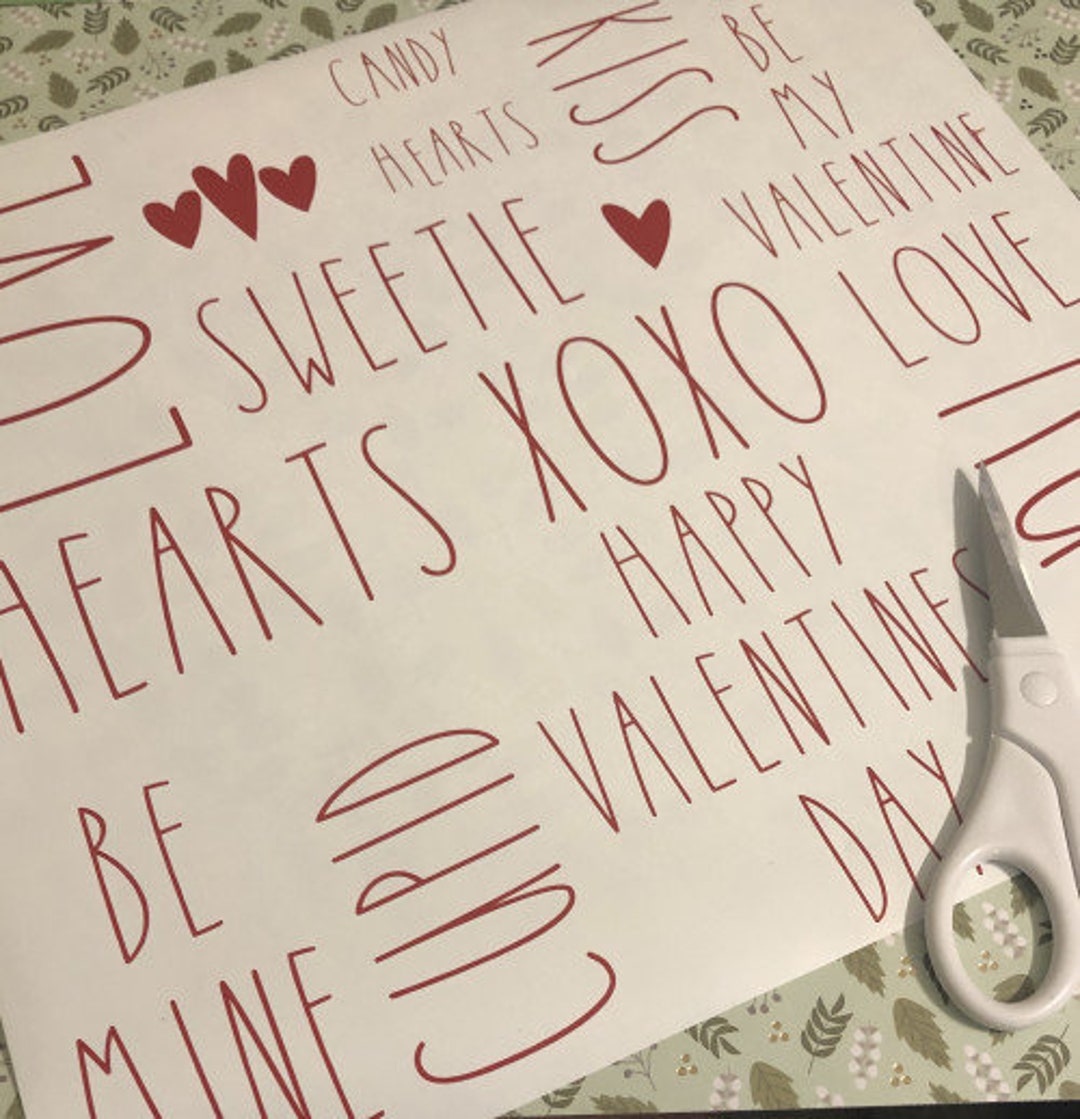 CANDY
HEARTS
KISS
BE
MY
VALENTINE
LOVE
SWEETIE
XOXO
LOVE
HEARTS
HAPPY
VALENTINES
DAY
BE
MINE
CUPID